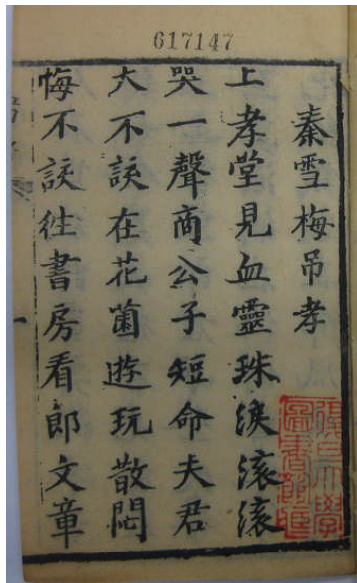 617147
秦雪梅吊孝
上孝堂見血靈珠淚滾滾
哭一聲商公子短命夫君
大不該在花薗遊玩散悶
悔不該徃書房看郎文章
一
復旦大學
圖書館